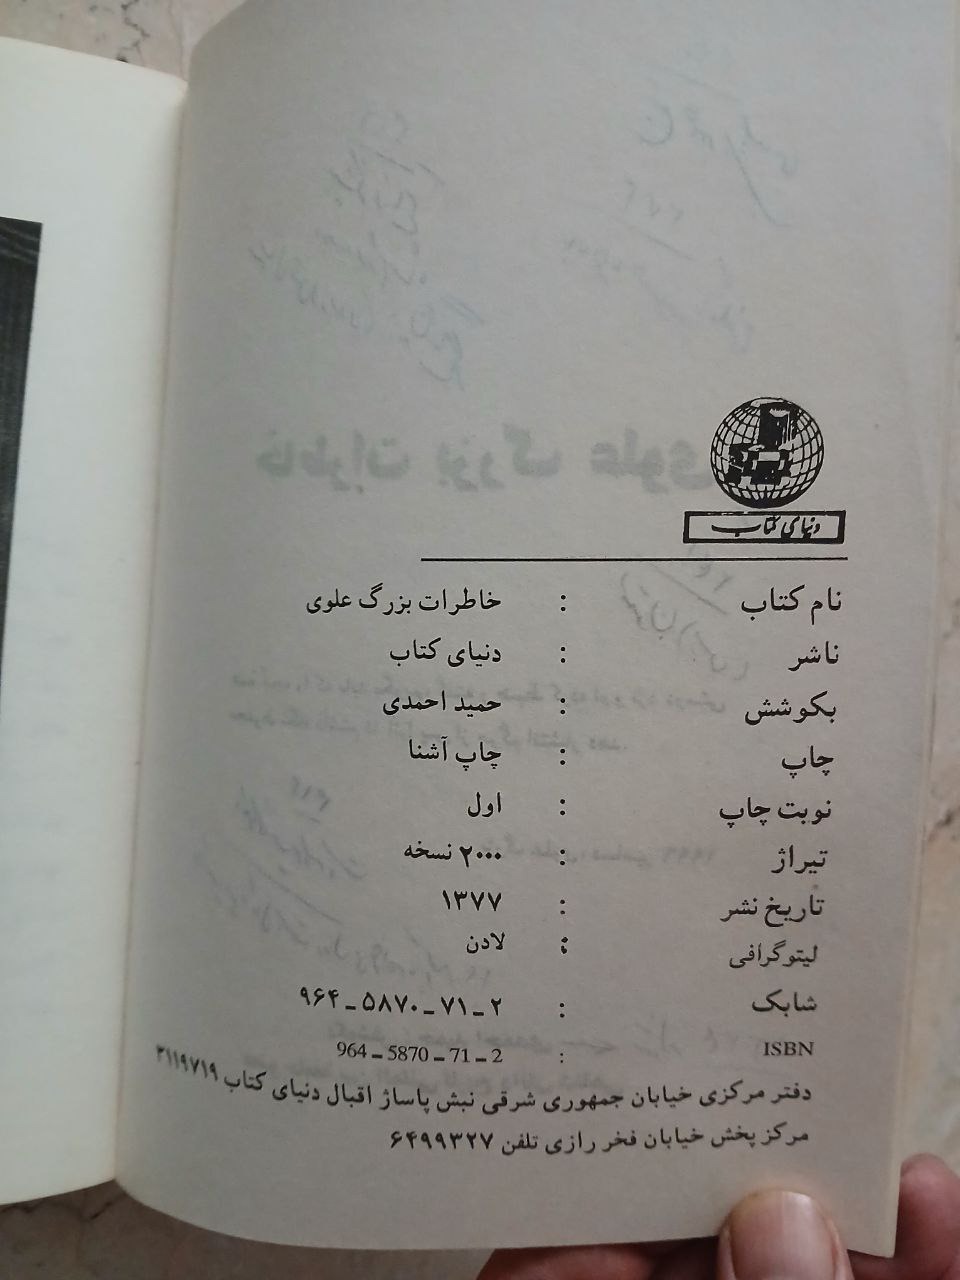 دنیای کتاب
نام کتاب : خاطرات بزرگ علوی
ناشر : دنیای کتاب
بکوشش : حمید احمدی
چاپ : چاپ آشنا
نوبت چاپ : اول
تیراژ : ۲۰۰۰ نسخه
تاریخ نشر : ۱۳۷۷
لیتوگرافی : لادن
شابک : ۲ ـ ۷۱ ـ ۵۸۷۰ ـ ۹۶۴
ISBN : 964 ـ 5870 ـ 71 ـ 2
دفتر مرکزی خیابان جمهوری شرقی نبش پاساژ اقبال دنیای کتاب ۳۱۱۹۷۱۹
مرکز پخش خیابان فخر رازی تلفن ۶۴۹۹۳۲۷